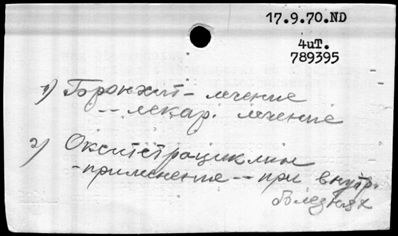 17.9.70.ND
4иТ.
789395
1) Бронхит - лечение
-- лекар. лечение
2) Окситетрациклин
- применение -- при внутр.
болезнях